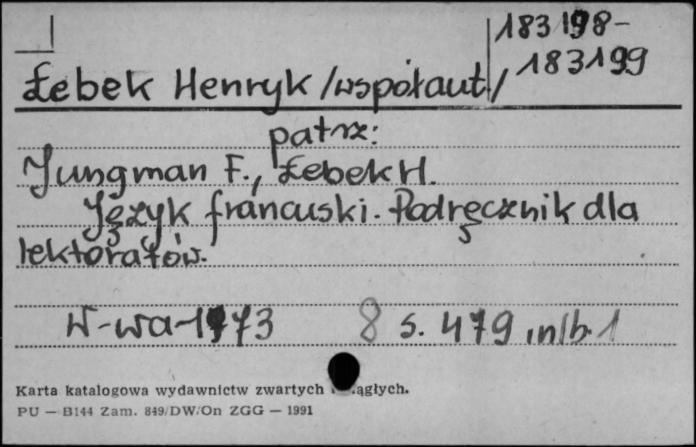 183198-
183199
Łebek Henryk /współaut/
patrz:
Jungman F., Łebek H.
Język francuski. Podręcznik dla
lektoratów.
W-wa-1973 8 s. 479 inlb. 1
Karta katalogowa wydawnictw zwartych
PU — B144 Zam. 849/DW/On ZGG — 1991